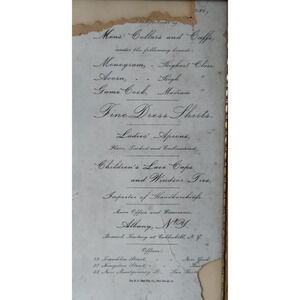 Mens' Collars and Cuffs,
under the following brands
Monogram, - Highest Class
Acorn, - - High
Game Cock, - Medium
Fine Dress Shirts.
Ladies' Aprons,
Plain, Tucked and Embroidered,
Children's Lace Caps
and Windsor Ties,
Importer of Handkerchiefs.
Main Office and Warerooms
Albany, N.Y.
Branch Factory at Cobleskill, N.Y.
Offices:
Franklin Street, New York
Kingston Street,
New Montgomery St. San